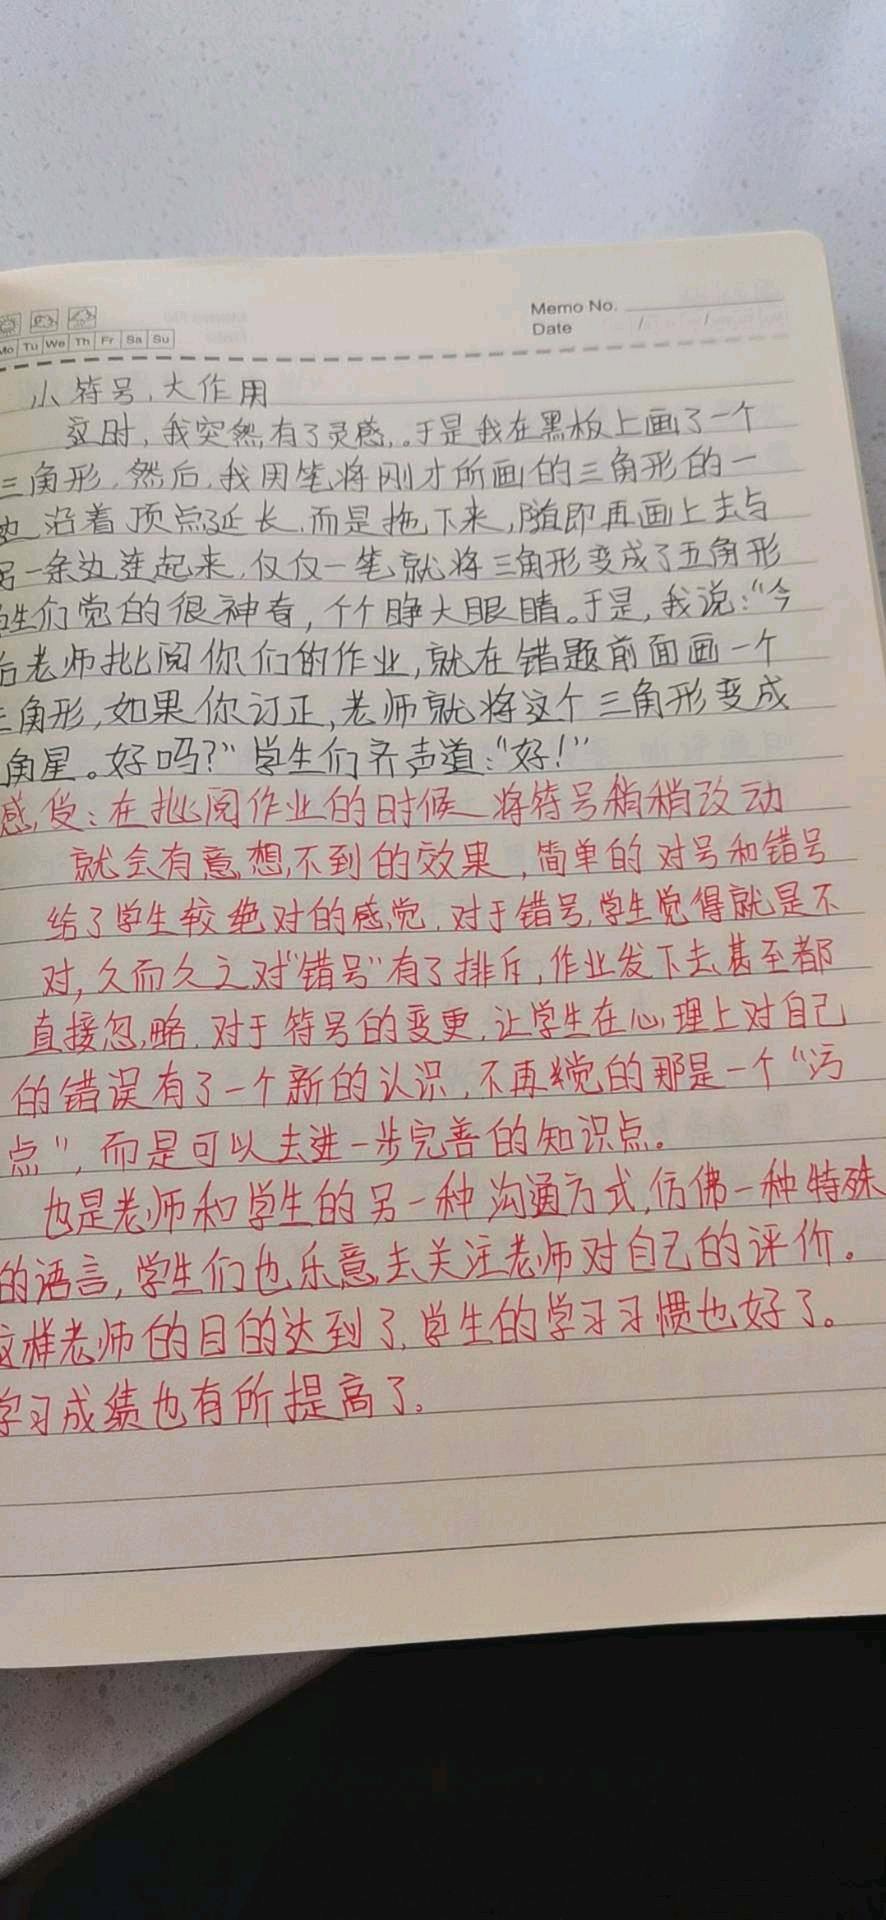 Memo No.
Mo Tu We Th Fr Sa Su
Date / /
小符号,大作用
这时,我突然有了灵感,。于是我在黑板上画了一个
三角形,然后,我用笔将刚才所画的三角形的一
边沿着顶点延长,而是拖下来,随即再画上去与
另一条边连起来,仅仅一笔就将三角形变成了五角形
学生们觉的很神奇,个个睁大眼睛。于是,我说:“今
后老师批阅你们的作业,就在错题前面画一个
三角形,如果你订正,老师就将这个三角形变成
角星。好吗?”学生们齐声道:“好!”
感受:在批阅作业的时候,将符号稍稍改动
就会有意想不到的效果,简单的对号和错号
给了学生较绝对的感觉,对于错号,学生觉得就是不
对,久而久之对“错号”有了排斥,作业发下去甚至都
直接忽略,对于符号的变更,让学生在心理上对自己
的错误有了一个新的认识,不再觉的那是一个“污
点”,而是可以去进一步完善的知识点。
也是老师和学生的另一种沟通方式,仿佛一种特殊
的语言,学生们也乐意去关注老师对自己的评价。
这样老师的目的达到了,学生的学习习惯也好了。
学习成绩也有所提高了。